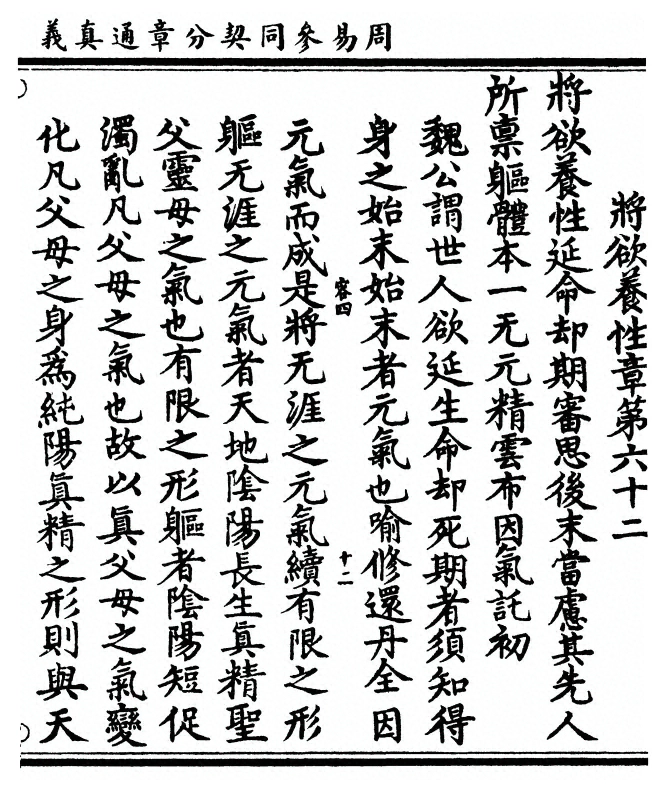 周易參同契分章通真義
將欲養性章第六十二
將欲養性延命却期審思後末當慮其先人
所禀軀體本一无元精雲布因氣託初
魏公謂世人欲延生命却死期者須知得
身之始末始末者元氣也喻修還丹全因
容四
十二
元氣而成是將无涯之元氣續有限之形
軀无涯之元氣者天地隂陽長生眞精聖
父靈母之氣也有限之形軀者隂陽短促
濁亂凡父母之氣也故以眞父母之氣變
化凡父母之身爲純陽眞精之形則與天